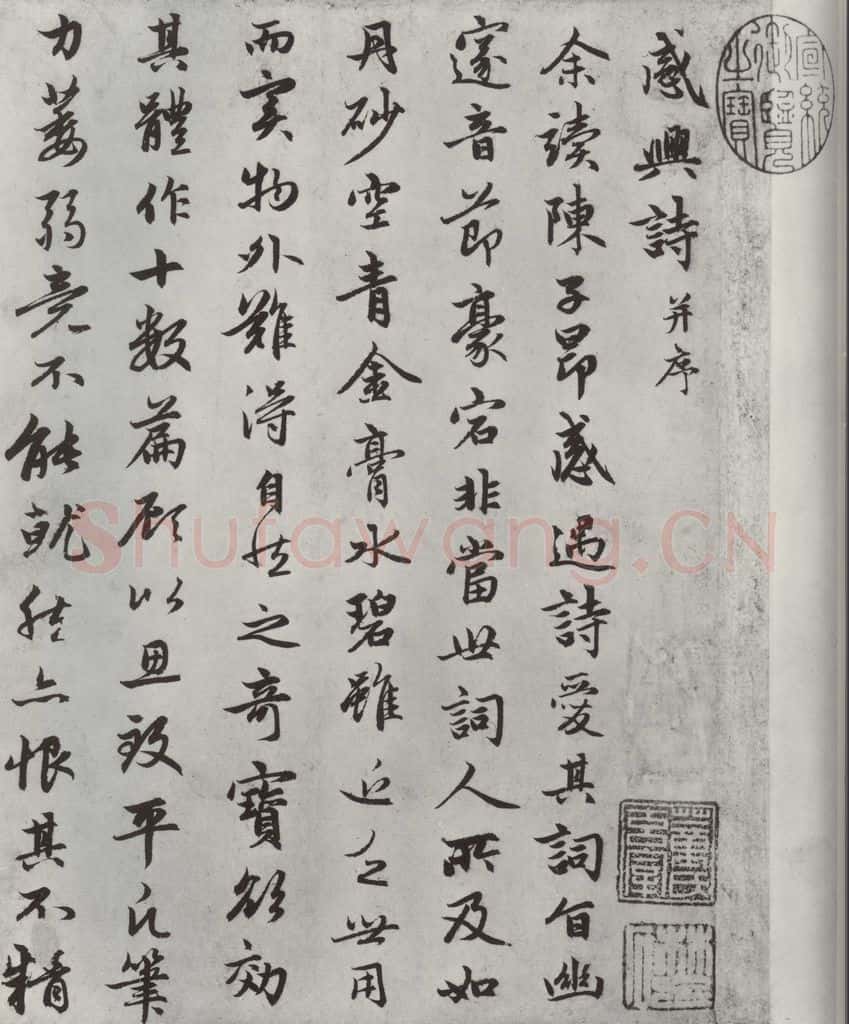 宣統御覽之寶
感興詩并序
余讀陳子昂感遇詩愛其詞旨幽
邃音節豪宕非當世詞人所及如
丹砂空青金膏水碧雖近乏世用
而實物外難得自然之奇寶欲効
其體作十數篇顧以思致平凡筆
力萎弱竟不能就然亦恨其不精
Shufawang.CN